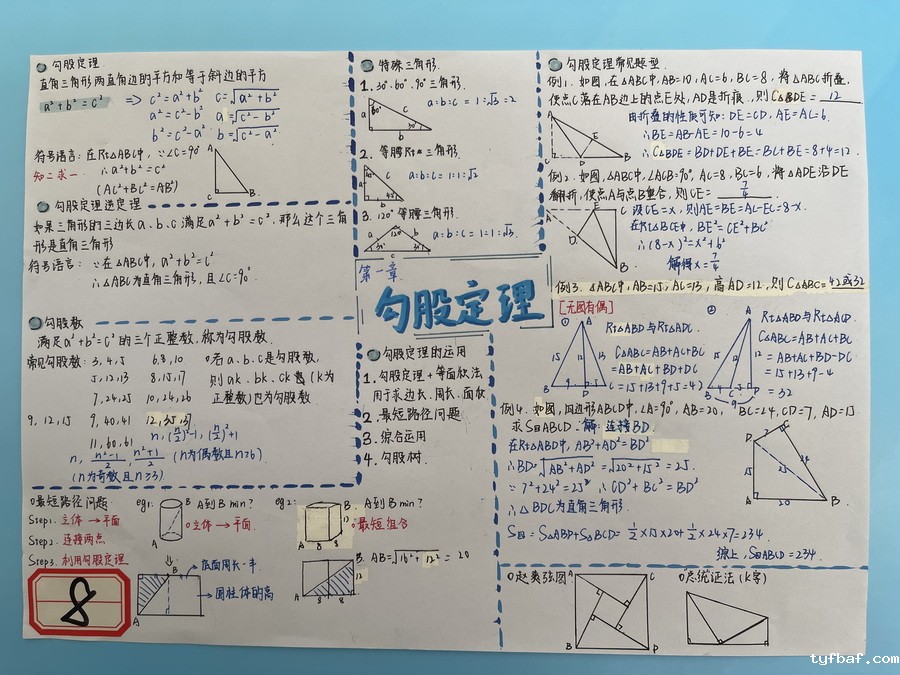 勾股定理
直角三角形两直角边的平方和等于斜边的平方
a²+b²=c² ⇒ c²=a²+b² c=√a²+b²
a²=c²-b² a=√c²-b²
b²=c²-a² b=√c²-a²
符号语言：在Rt△ABC中，∵∠C=90°
知二求一 ∴a²+b²=c²
(AC²+BC²=AB²)
A
C B
勾股定理逆定理
如果三角形的三边长a、b、c满足a²+b²=c²，那么这个三角
形是直角三角形
符号语言：∵在△ABC中，a²+b²=c²
∴△ABC为直角三角形，且∠C=90°
勾股数
满足a²+b²=c²的三个正整数，称为勾股数
常见勾股数：3，4，5 6，8，10
5，12，13 8，15，17
7，24，25 10，24，26
9，12，15 9，40，41 12，35，37
11，60，61
若a、b、c是勾股数，
则ak、bk、ck (k为
正整数)也为勾股数
n，(n/2)²-1，(n/2)²+1
n，n²-1/2，n²+1/2 (n为偶数且n≥6)
(n为奇数且n≥3)
特殊三角形
1. 30° 60° 90°三角形
a:b:c=1:√3:2
2. 等腰Rt三角形
a:b:c=1:1:√2
3. 120°等腰三角形
a:b:c=1:1:√3
第一章
勾股定理
勾股定理的运用
1. 勾股定理+等面积法
用于求边长、周长、面积
2. 最短路径问题
3. 综合运用
4. 勾股树
勾股定理常见题型
例1. 如图，在△ABC中，AB=10，AC=6，BC=8，将△ABC折叠，
使点C落在AB边上的点E处，AD是折痕，则C△BDE=12
由折叠的性质可知：DE=CD，AE=AC=6
∴BE=AB-AE=10-6=4
∴C△BDE=BD+DE+BE=BC+BE=8+4=12
例2. 如图，△ABC中，∠ACB=90°，AC=8，BC=6，将△ADE沿DE
翻折，使点A与点B重合，则CE=7/4
设CE=x，则AE=BE=AC-EC=8-x
在Rt△BCE中，BE²=CE²+BC²
∴(8-x)²=x²+6²
解得x=7/4
例3. △ABC中，AB=15，AC=13，高AD=12，则C△ABC=42或32
[无图有偶]
① Rt△ABD与Rt△ADC
C△ABC=AB+AC+BC
=AB+AC+BD+DC
=15+13+9+5=42
② Rt△ABD与Rt△ACD
C△ABC=AB+AC+BC
=AB+AC+BD-DC
=15+13+9-4
=32
例4. 如图，四边形ABCD中，∠A=90°，AB=20，BC=24，CD=7，AD=15
求S四ABCD 解：连接BD
在Rt△ABD中，AB²+AD²=BD²
∴BD=√AB²+AD²=√20²+15²=25
∵7²+24²=25² ∴CD²+BC²=BD²
∴△BDC为直角三角形
S四=S△ABD+S△BCD=½×15×20+½×24×7=234
综上，S四ABCD=234
最短路径问题
Step1. 立体→平面
Step2. 连接两点
Step3. 利用勾股定理
eg1: A到B min?
立体→平面
底面周长一半
圆柱体的高
eg2: A到B min?
最短组合
AB=√16²+12²=20
8
赵爽弦图
总统证法(K字)
tyfbaf.com